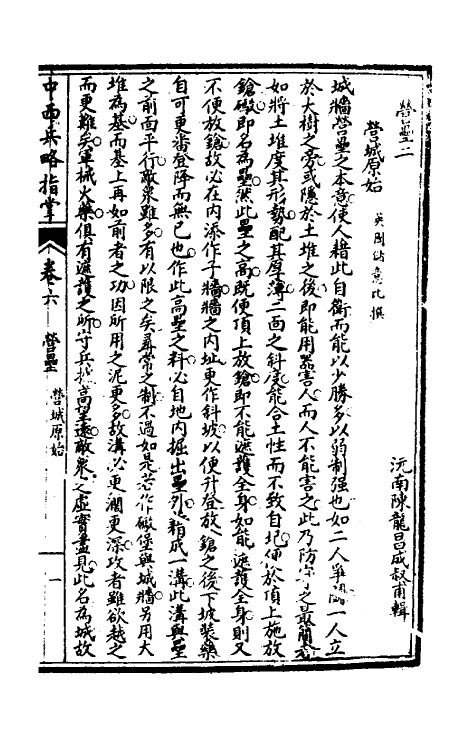 營壘二
沅南陳龍昌成叔甫輯
營城原始
英國儲意比撰
城牆營壘之本意使人藉此自衛而能以少勝多以弱制强也如二人爭鬭一人立
於大樹之旁或隱於土堆之後即能用器害人而人不能害之此乃防守之最簡者
如將土堆度其形勢配其厚薄二面之斜度能合土性而不致自圮便於頂上施放
鎗礮即名為壘然此壘之高既便頂上放鎗即不能遮護全身如能遮護全身則又
不便放鎗故必在内添作子牆牆之内址更作斜坡以便升登放鎗之後下坡裝藥
自可更番登降而無已也作此高壘之料必自地内掘出壘外藉成一溝此溝與壘
之前面平行敵衆雖多有以限之矣尋常之制不過如是若作礮堡與城牆另用大
堆為基而基上再如前者之功因所用之泥更多故溝必更濶更深攻者雖欲越之
而更難矣軍械火藥俱有遮護之所守兵據高望遠敵衆之虛實盡見此名為城故
中西兵略指掌
卷六
營壘
營城原始
一